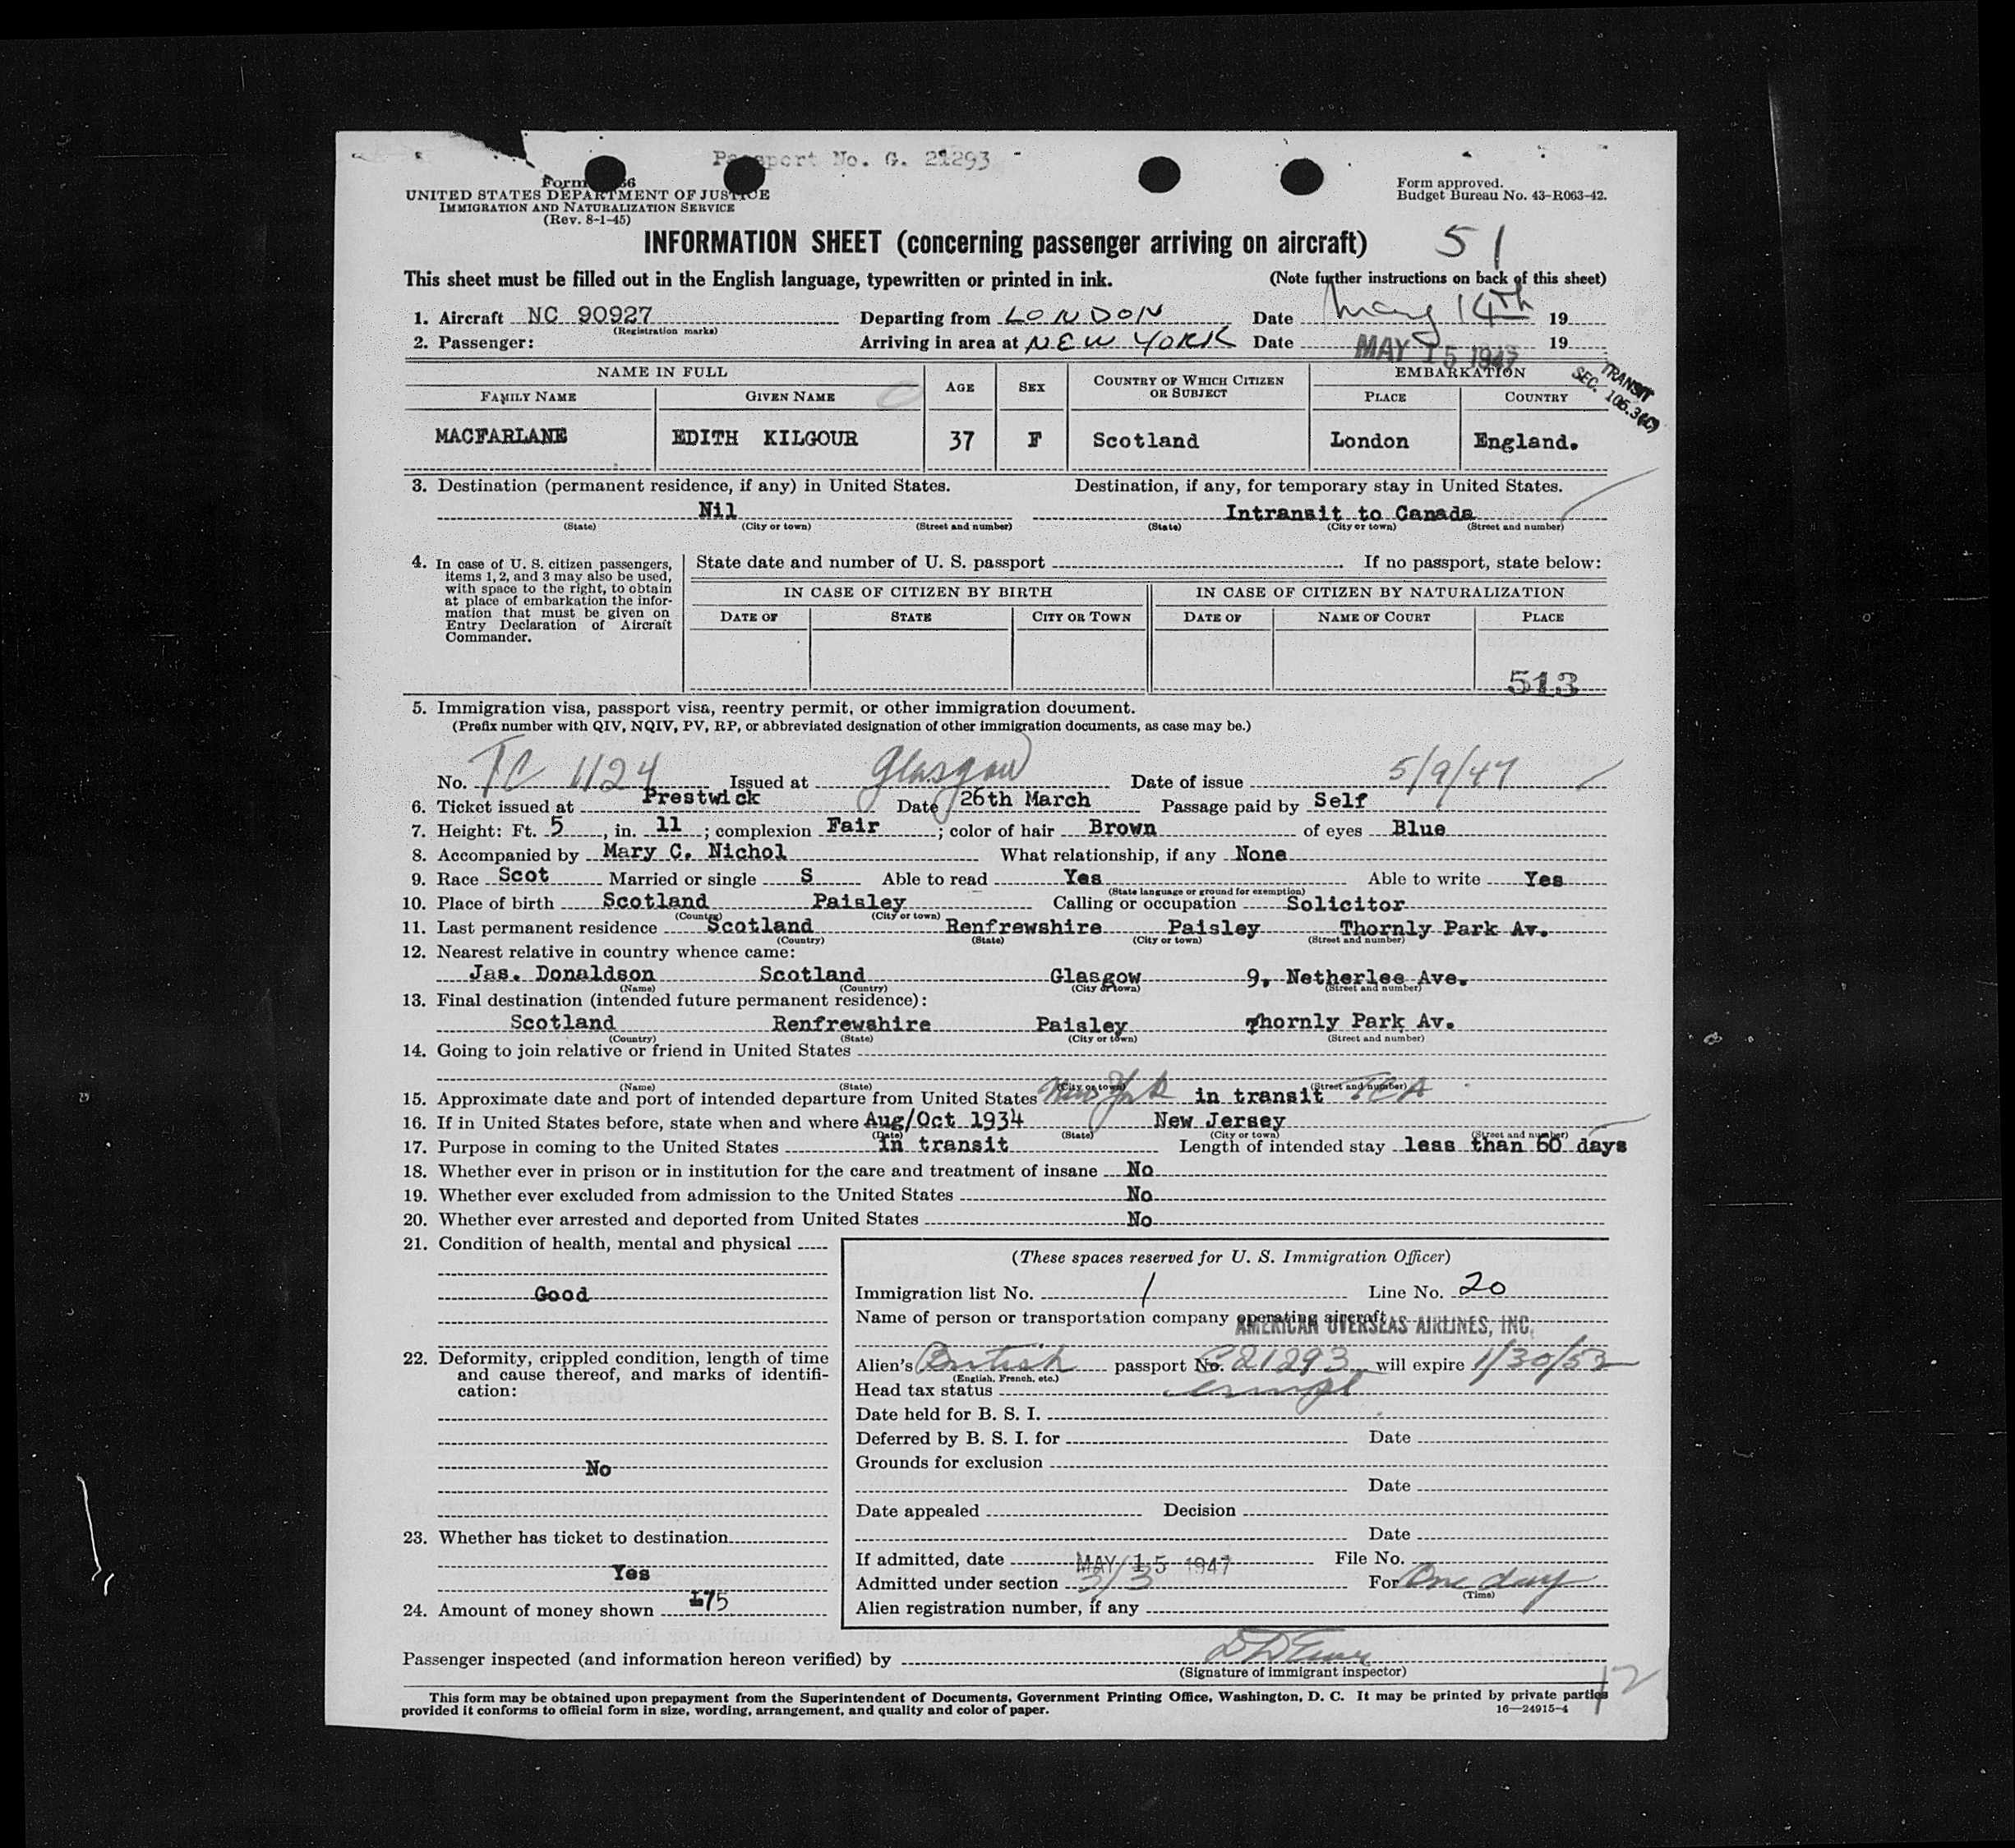 Passport No. G. 21293
Form 66
UNITED STATES DEPARTMENT OF JUSTICE
IMMIGRATION AND NATURALIZATION SERVICE
(Rev. 8-1-45)
Form approved.
Budget Bureau No. 43-R063-42.
INFORMATION SHEET (concerning passenger arriving on aircraft) 51
This sheet must be filled out in the English language, typewritten or printed in ink. (Note further instructions on back of this sheet)
1. Aircraft NC 90927 Departing from LONDON Date May 14th 19
(Registration marks)
2. Passenger: Arriving in area at NEW YORK Date MAY 15 1947 19
TRANSIT
SEC. 105.3(C)
NAME IN FULL AGE SEX COUNTRY OF WHICH CITIZEN OR SUBJECT EMBARKATION
FAMILY NAME GIVEN NAME PLACE COUNTRY
MACFARLANE EDITH KILGOUR 37 F Scotland London England.
3. Destination (permanent residence, if any) in United States. Destination, if any, for temporary stay in United States.
Nil Intransit to Canada
(State) (City or town) (Street and number) (State) (City or town) (Street and number)
4. In case of U. S. citizen passengers, items 1, 2, and 3 may also be used, with space to the right, to obtain at place of embarkation the information that must be given on Entry Declaration of Aircraft Commander.
State date and number of U. S. passport If no passport, state below:
IN CASE OF CITIZEN BY BIRTH IN CASE OF CITIZEN BY NATURALIZATION
DATE OF STATE CITY OR TOWN DATE OF NAME OF COURT PLACE
513
5. Immigration visa, passport visa, reentry permit, or other immigration document.
(Prefix number with QIV, NQIV, PV, RP, or abbreviated designation of other immigration documents, as case may be.)
No. TC 1124 Issued at Glasgow Date of issue 5/9/47
6. Ticket issued at Prestwick Date 26th March Passage paid by Self
7. Height: Ft. 5, in. 11; complexion Fair; color of hair Brown of eyes Blue
8. Accompanied by Mary C. Nichol What relationship, if any None
9. Race Scot Married or single S Able to read Yes Able to write Yes
(State language or ground for exemption)
10. Place of birth Scotland Paisley Calling or occupation Solicitor
(Country) (City or town)
11. Last permanent residence Scotland Renfrewshire Paisley Thornly Park Av.
(Country) (State) (City or town) (Street and number)
12. Nearest relative in country whence came:
Jas. Donaldson Scotland Glasgow 9, Netherlee Ave.
(Name) (Country) (City or town) (Street and number)
13. Final destination (intended future permanent residence):
Scotland Renfrewshire Paisley Thornly Park Av.
(Country) (State) (City or town) (Street and number)
14. Going to join relative or friend in United States
(Name) (State) (City or town) (Street and number)
15. Approximate date and port of intended departure from United States New York in transit TCA
16. If in United States before, state when and where Aug/Oct 1934 New Jersey
(Date) (State) (City or town) (Street and number)
17. Purpose in coming to the United States in transit Length of intended stay less than 60 days
18. Whether ever in prison or in institution for the care and treatment of insane No
19. Whether ever excluded from admission to the United States No
20. Whether ever arrested and deported from United States No
21. Condition of health, mental and physical
Good
22. Deformity, crippled condition, length of time and cause thereof, and marks of identification:
No
23. Whether has ticket to destination
Yes
24. Amount of money shown £75
(These spaces reserved for U. S. Immigration Officer)
Immigration list No. 1 Line No. 20
Name of person or transportation company operating aircraft
AMERICAN OVERSEAS AIRLINES, INC.
Alien's British passport No. 21293 will expire 1/30/52
(English, French, etc.)
Head tax status exempt
Date held for B. S. I.
Deferred by B. S. I. for Date
Grounds for exclusion
Date
Date appealed Decision
Date
If admitted, date MAY 15 1947 File No.
Admitted under section 3/3 For One day
(Time)
Alien registration number, if any
Passenger inspected (and information hereon verified) by
(Signature of immigrant inspector)
12
This form may be obtained upon prepayment from the Superintendent of Documents, Government Printing Office, Washington, D. C. It may be printed by private parties
provided it conforms to official form in size, wording, arrangement, and quality and color of paper. 16—24915-4